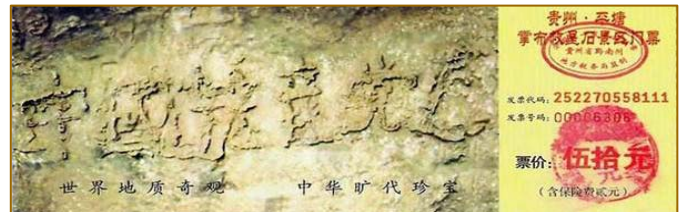 中国共产党亡
世界地质奇观 中华旷代珍宝
贵州·平塘
掌布救星石景区门票
贵州省黔南州
地方税务局监制
发票代码:252270558111
发票号码:00006306
票价:伍拾元
(含保险费贰元)